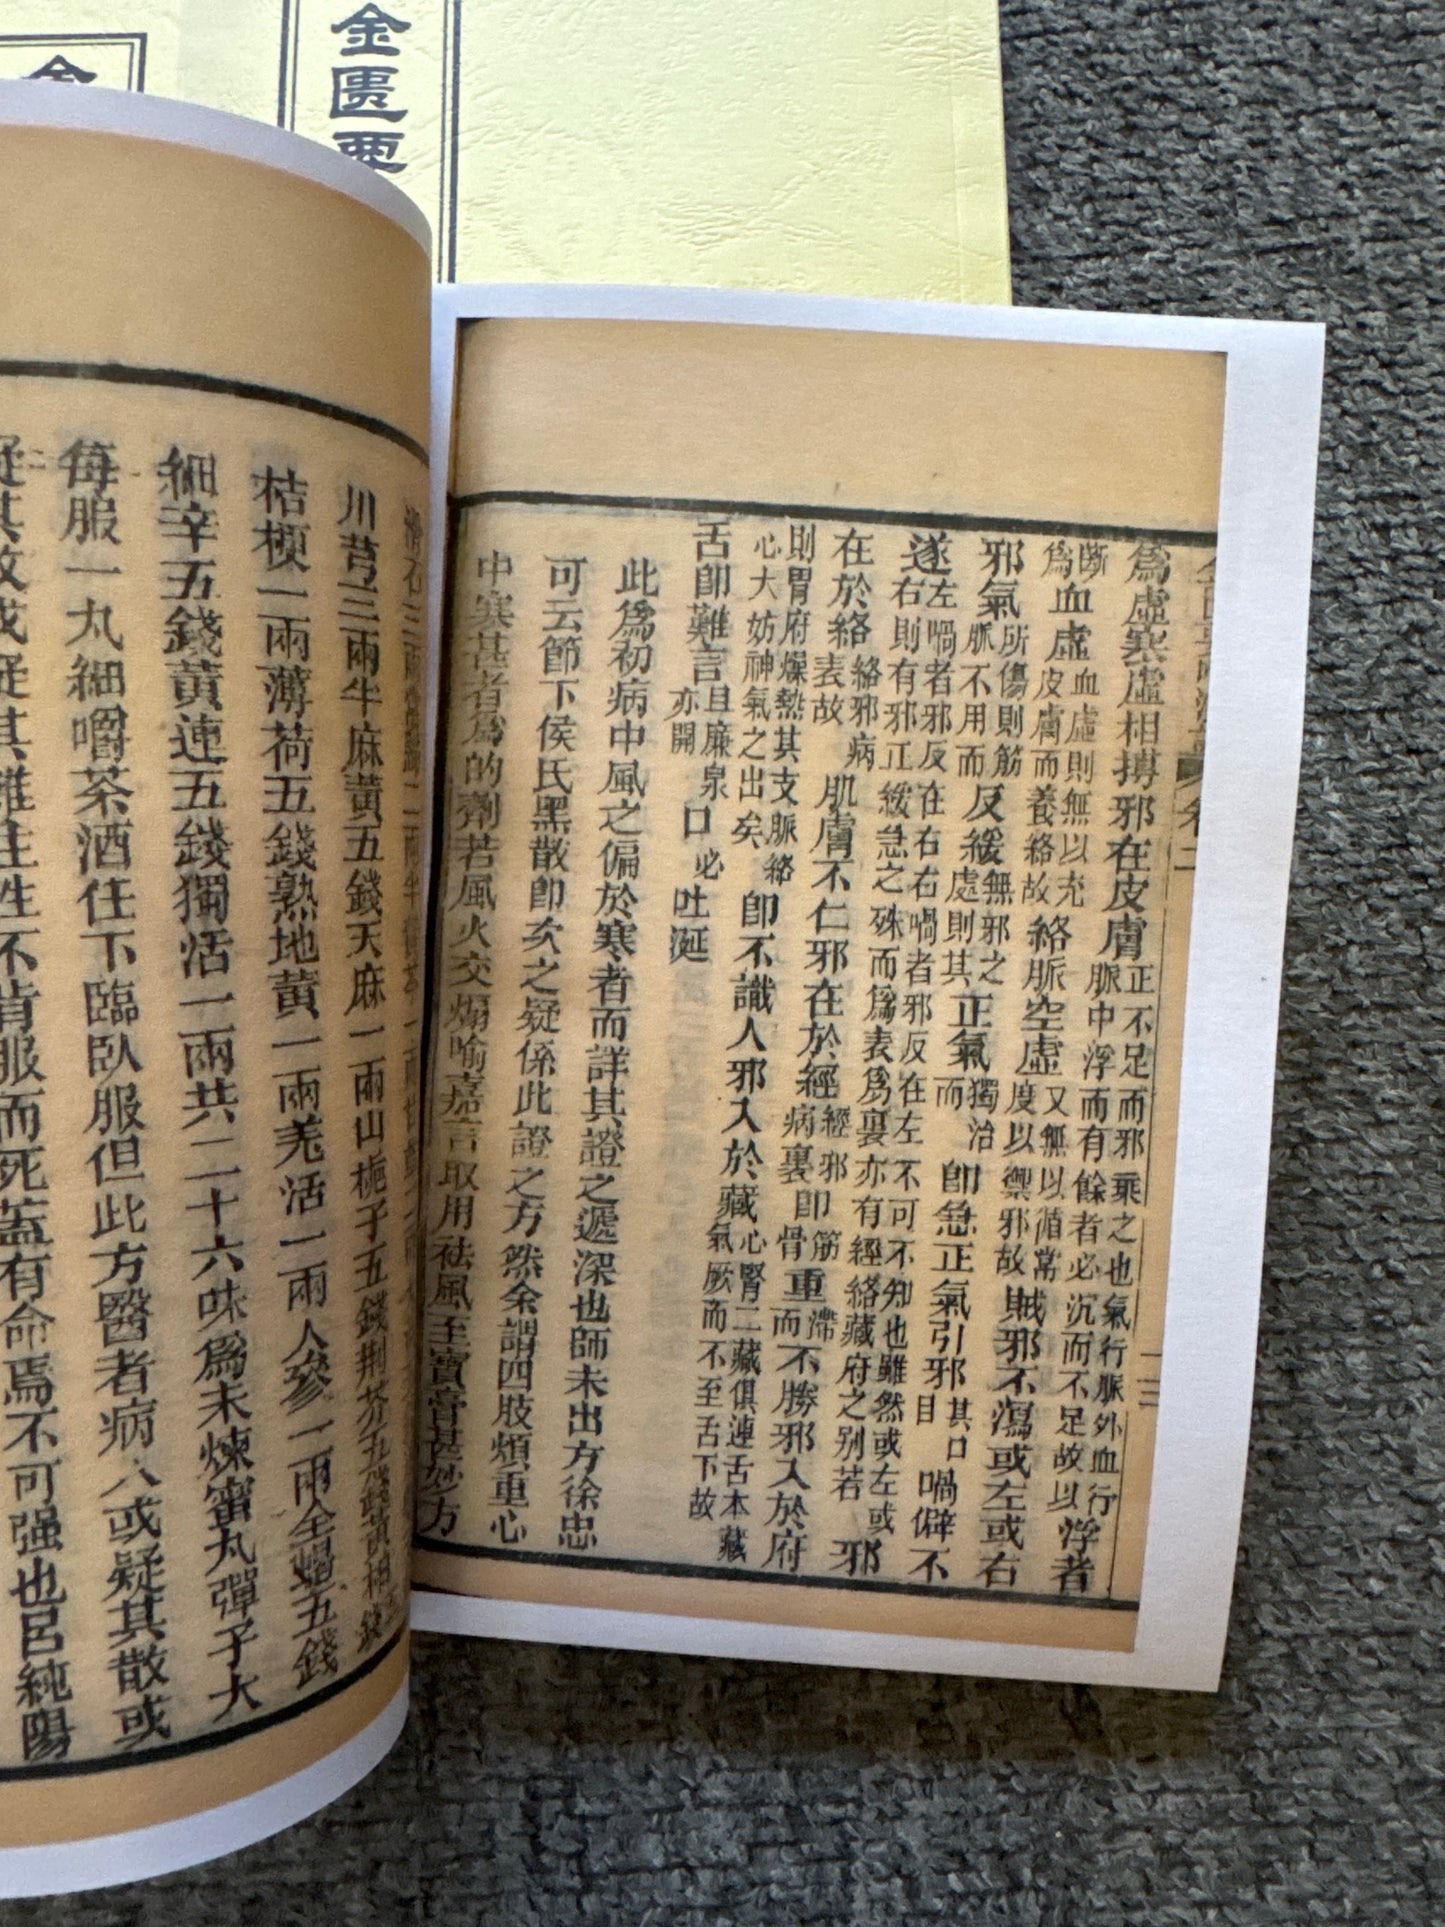 金匱要
金
爲虛寒虛相搏邪在皮膚正不足而邪乘之也氣行脈外血行脈中浮而有餘者必沉而不足故以浮者
斷爲血虛血虛則無以充皮膚而養絡故絡脈空虛又無以循常度以禦邪故賊邪不瀉或左或右
邪氣所傷則筋脈不用而反緩無邪之處則其正氣獨治而卽急正氣引邪其口目喎僻不
遂左喎者邪反在右右喎者邪反在左不可不知也雖然或左或右則有邪正緩急之殊而爲表爲裏亦有經絡藏府之别若邪
在於絡絡邪病表故肌膚不仁邪在於經經邪病裏卽筋骨重滯而不勝邪入於府
則胃府燥熱其支脈絡心大妨神氣之出矣卽不識人邪入於藏心腎二藏俱連舌本藏氣厥而不至舌下故
舌卽難言且廉泉亦開口必吐涎
此爲初病中風之偏於寒者而詳其證之遞深也師未出方徐忠
可云節下侯氏黑散卽次之疑係此證之方然余謂四肢煩重心
中寒甚者爲的劑若風火交煽喻嘉言取用祛風至寶膏甚妙方
川芎三兩半麻黃五錢天麻一兩山梔子五錢荆芥五錢黃柏五錢
桔梗一兩薄荷五錢熟地黃一兩羗活一兩人參一兩全蝎五錢
細辛五錢黃連五錢獨活一兩共二十六味爲末煉蜜丸彈子大
每服一丸細嚼茶酒任下臨臥服但此方醫者病人或疑其散或
疑其攻或疑其雜往往不肯服而死蓋有命焉不可强也呂純陽